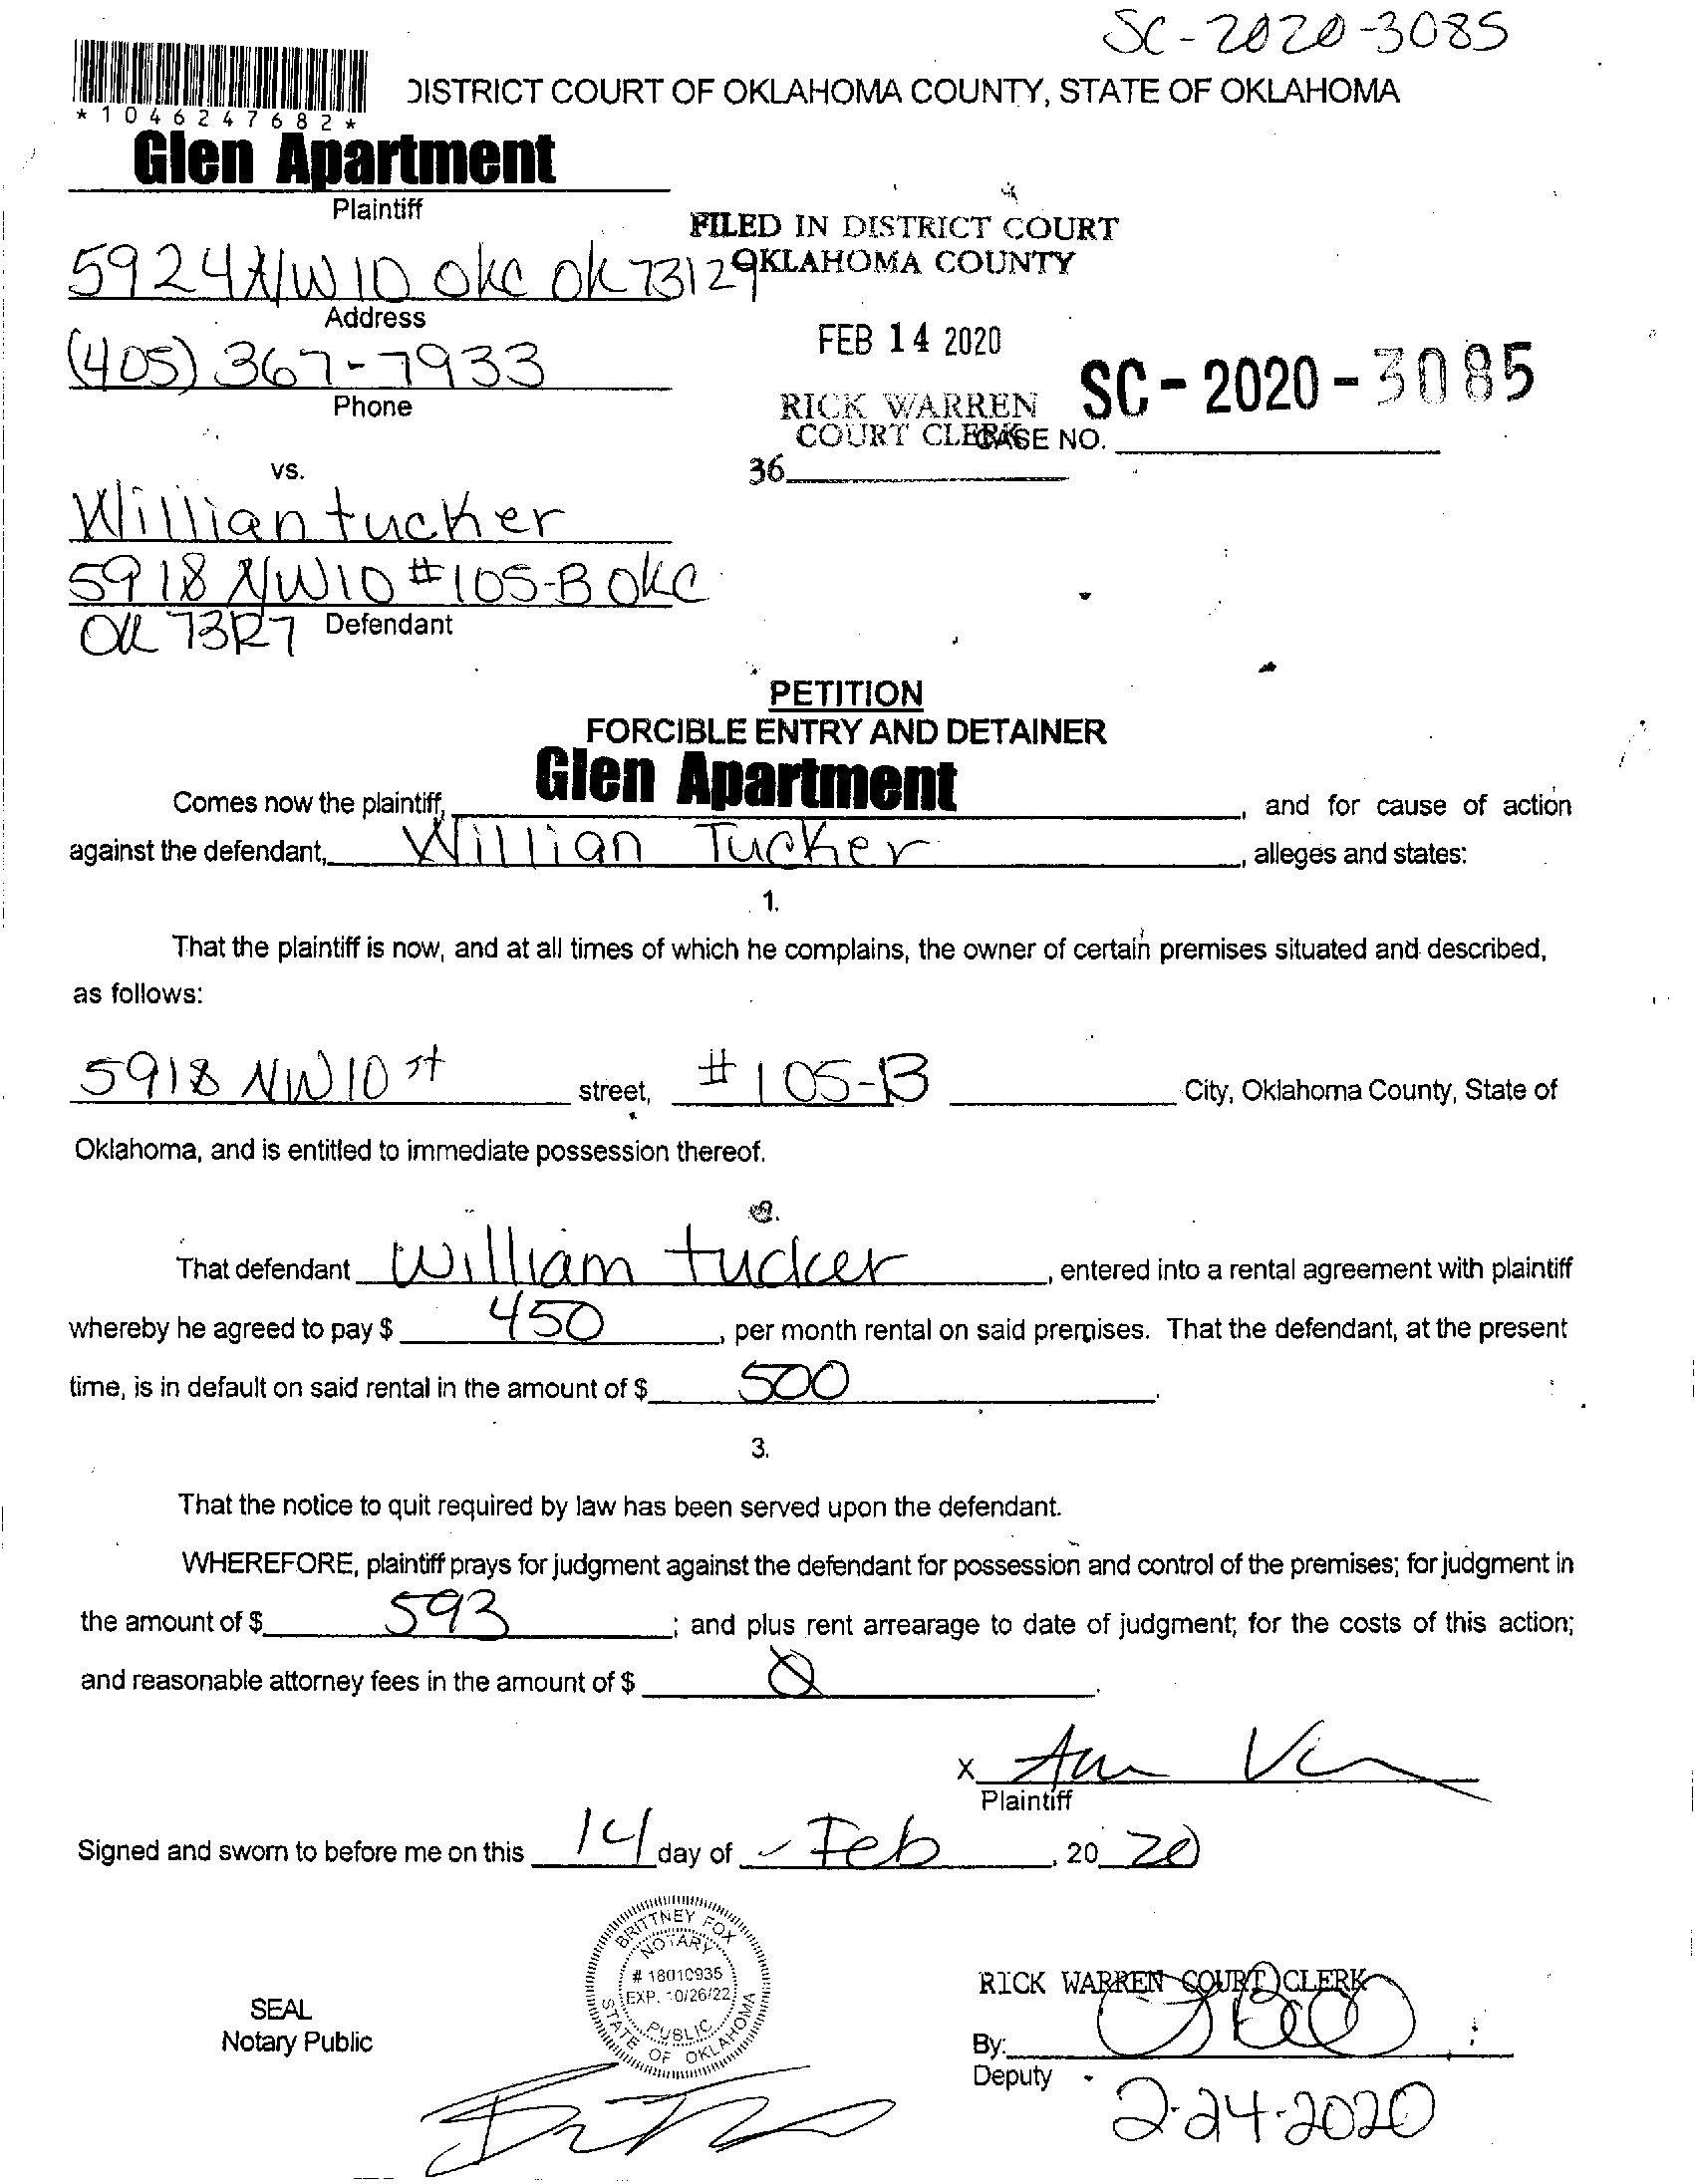 SC-2020-3085
DISTRICT COURT OF OKLAHOMA COUNTY, STATE OF OKLAHOMA
*1046247682*
Glen Apartment
Plaintiff
FILED IN DISTRICT COURT
OKLAHOMA COUNTY
5924 NW 10 OKC OK 73127
Address
FEB 14 2020
(405) 367-7933
Phone
RICK WARREN
COURT CLERK
SC-2020-3085
CASE NO.
36
vs.
Willian tucker
5918 NW10 #105-B OKC
OK 73127
Defendant
PETITION
FORCIBLE ENTRY AND DETAINER
Comes now the plaintiff, Glen Apartment, and for cause of action
against the defendant, Willian Tucker, alleges and states:
1.
That the plaintiff is now, and at all times of which he complains, the owner of certain premises situated and described,
as follows:
5918 NW 10 st street, #105-B City, Oklahoma County, State of
Oklahoma, and is entitled to immediate possession thereof.
2.
That defendant William tucker, entered into a rental agreement with plaintiff
whereby he agreed to pay $ 450, per month rental on said premises. That the defendant, at the present
time, is in default on said rental in the amount of $ 500.
3.
That the notice to quit required by law has been served upon the defendant.
WHEREFORE, plaintiff prays for judgment against the defendant for possession and control of the premises; for judgment in
the amount of $ 593; and plus rent arrearage to date of judgment; for the costs of this action;
and reasonable attorney fees in the amount of $ 0.
X
Plaintiff
Signed and sworn to before me on this 14 day of Feb, 2020
BRITTNEY FOX
NOTARY
# 18010935
EXP. 10/26/22
PUBLIC
STATE OF OKLAHOMA
SEAL
Notary Public
RICK WARREN COURT CLERK
By:
Deputy
2-24-2020